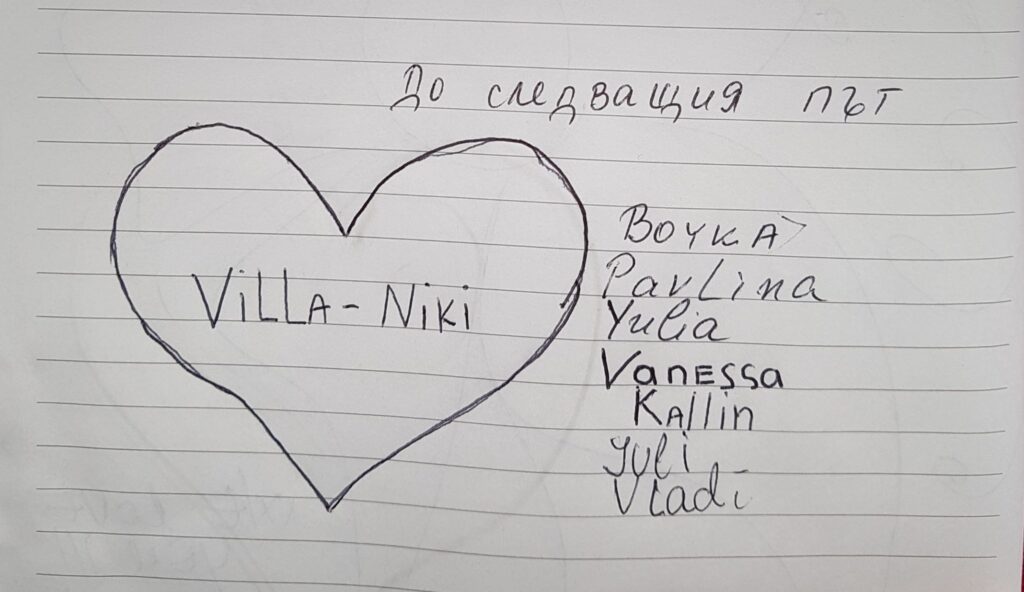 До следващия път
Villa - Niki
Вочка
Pavlina
Yulia
Vanessa
Kallin
Juli
Vladi